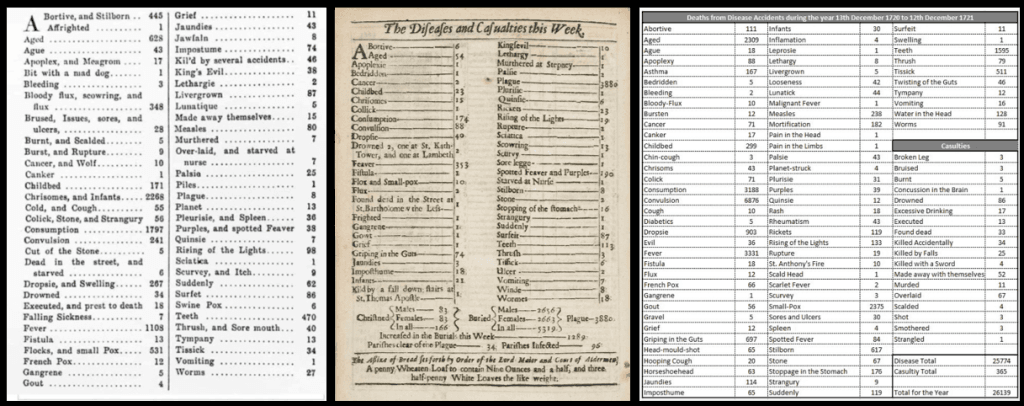 Abortive, and Stilborn .. 445
Affrighted 1
Aged 628
Ague 43
Apoplex, and Meagrom 17
Bit with a mad dog 1
Bleeding 3
Bloody flux, scowring, and
flux 348
Brused, Issues, sores, and
ulcers, 28
Burnt, and Scalded 5
Burst, and Rupture 9
Cancer, and Wolf 10
Canker 1
Childbed 171
Chrisomes, and Infants 2268
Cold, and Cough 55
Colick, Stone, and Strangury 56
Consumption 1797
Convulsion 241
Cut of the Stone 5
Dead in the street, and
starved 6
Dropsie, and Swelling 267
Drowned 34
Executed, and prest to death 18
Falling Sickness 7
Fever 1108
Fistula 13
Flocks, and small Pox 531
French Pox 12
Gangrene 5
Gout 4
Grief 11
Jaundies 43
Jawfaln 8
Impostume 74
Kil'd by several accidents 46
King's Evil 38
Lethargie 2
Livergrown 87
Lunatique 5
Made away themselves 15
Measles 80
Murthered 7
Over-laid, and starved at
nurse 7
Palsie 25
Piles 1
Plague 8
Planet 13
Pleurisie, and Spleen 36
Purples, and spotted Feaver 38
Quinsie 7
Rising of the Lights 98
Sciatica 1
Scurvey, and Itch 9
Suddenly 62
Surfet 86
Swine Pox 6
Teeth 470
Thrush, and Sore mouth 40
Tympany 13
Tissick 34
Vomiting 1
Worms 27
The Diseases and Casualties this Week.
Abortive 6
Aged 54
Apoplexie 1
Bedridden 1
Cancer 2
Childbed 23
Chrisomes 15
Collick 1
Consumption 174
Convulsion 88
Dropsie 40
Drowned 2, one at St. Kath-
Tower, and one at Lambeth
Feaver 353
Fistula
Flox and Small-pox 10
Found dead in the Street at
St. Bartholomew the Less 1
Frighted 1
Gangrene 1
Gowt 1
Grief 1
Griping in the Guts 74
Jaundies 3
Imposthume 18
Infants 21
Kild by a fall down stairs at
St. Thomas Apostle 1
Kingsevil 10
Lethargy 1
Murthered at Stepney 1
Palsie 2
Plague 3880
Plurisie 1
Quinsie 6
Rickets 23
Rising of the Lights 19
Rupture 2
Sciatica 1
Scowring 13
Scurvy 1
Sore legge 1
Spotted Feaver and Purples 190
Starved at Nurse 1
Stilborn 8
Stone 2
Stopping of the stomach 16
Strangury 1
Suddenly 1
Surfeit 87
Teeth 113
Thrush 3
Tissick 6
Ulcer 2
Vomiting 7
Winde 8
Wormes 18
Christned Males 83 Females 83 In all 166
Buried Males 2656 Females 2663 In all 5319
Plague 3880.
Increased in the Burials this Week 1289
Parishes clear of the Plague 34 Parishes Infected 96
The Assize of Bread set forth by Order of the Lord Maior and Court of Aldermen,
A penny Wheaten Loaf to contain Nine Ounces and a half, and three
half-penny White Loaves the like weight.
Deaths from Disease Accidents during the year 13th December 1720 to 12th December 1721
Abortive 111
Aged 2309
Ague 18
Apoplexy 88
Asthma 167
Bedridden 5
Bleeding 2
Bloody-Flux 10
Bursten 12
Cancer 71
Canker 17
Childbed 299
Chin-cough 3
Chrisoms 43
Colick 71
Consumption 3188
Convulsion 6876
Cough 10
Diabetics 5
Dropsie 903
Evil 36
Fever 3331
Fistula 18
Flux 12
French Pox 66
Gangrene 1
Gout 56
Gravel 5
Grief 12
Griping in the Guts 697
Head-mould-shot 65
Hooping Cough 20
Horseshoehead 63
Jaundies 114
Imposthume 65
Infants 30
Inflamation 4
Leprosie 1
Lethargy 8
Livergrown 5
Looseness 42
Lunatick 44
Malignant Fever 1
Measles 238
Mortification 182
Pain in the Head 1
Pain in the Limbs 1
Palsie 43
Planet-struck 4
Plurisie 31
Purples 39
Quinsie 12
Rash 18
Rheumatism 43
Rickets 119
Rising of the Lights 133
Rupture 19
St. Anthony's Fire 10
Scald Head 1
Scarlet Fever 2
Scurvey 3
Small-Pox 2375
Sores and Ulcers 30
Spleen 4
Spotted Fever 84
Stilborn 617
Stone 67
Stoppage in the Stomach 176
Strangury 9
Suddenly 119
Surfeit 11
Swelling 1
Teeth 1595
Thrush 79
Tissick 511
Twisting of the Guts 46
Tympany 12
Vomiting 16
Water in the Head 128
Worms 91
Casulties
Broken Leg 3
Bruised 3
Burnt 5
Concussion in the Brain 1
Drowned 86
Excessive Drinking 17
Executed 13
Found dead 33
Killed Accidentally 34
Killed by Falls 51
Killed with a Sword 4
Made away with themselves 52
Murded 11
Overlaid 67
Scalded 4
Shot 3
Smothered 3
Strangled 1
Disease Total 25774
Casulity Total 365
Total for the Year 26139